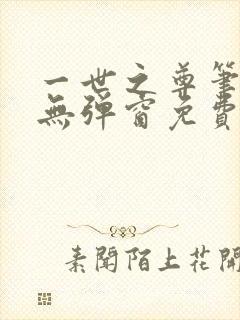 一世之尊筆
無彈窗免費
素聞陌上花開